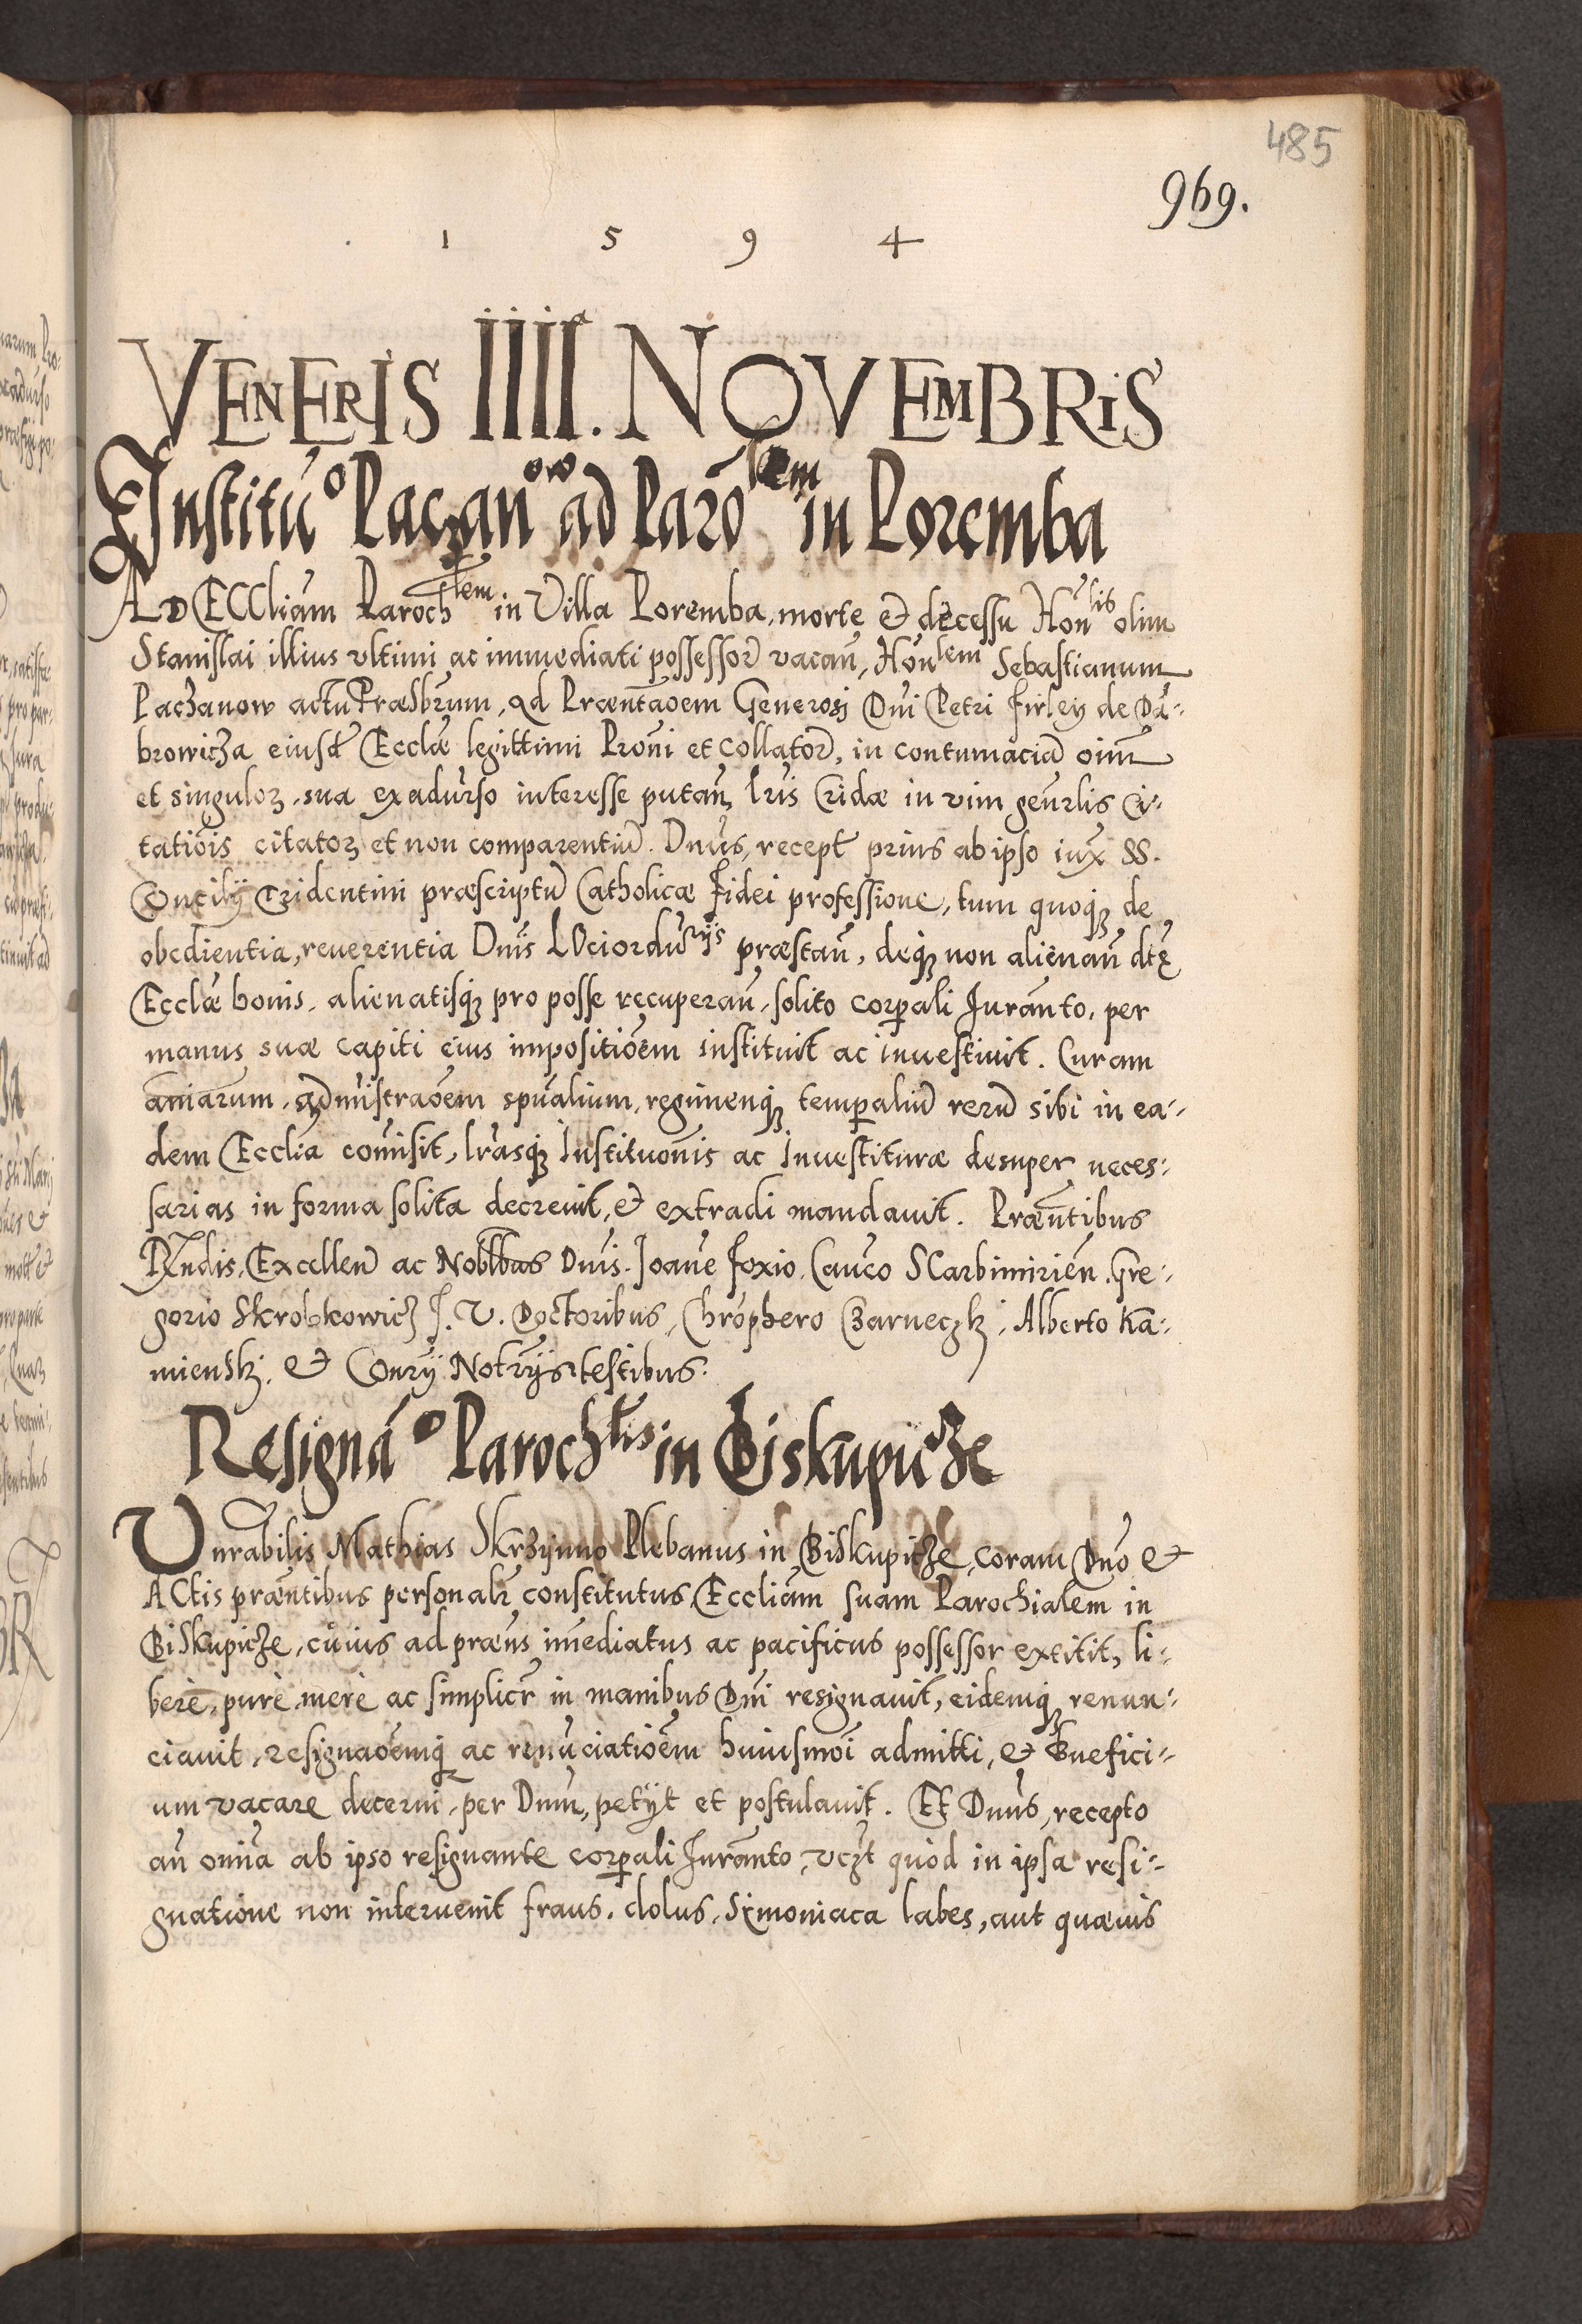 485
969.
1 5 9 4
VENERIS IIIIª. NOVEMBRIS
Institu͠o Paczan͠ow ad Paro͠lem in Poremba
AD ECCliam Parochlem in Villa Poremba, morte et decessu Honlis olim
Stanislai illius vltimi ac immediati possessor͠ vacan͠, Hon͠lem Sebastianum
Paczanow actu Præsbrum, ad Præntaoem Generosi Dni Petri Firley de Da-
browicza eiusd͠ Ecclæ legittimi Proni et Collator͠, in contumacia͠ oim͠
et singuloꝝ sua exadurso interesse putan͠, lris Cridæ in vim gen͠rlis Ci-
tatiois citatoꝝ et non comparentiu͠. Dnus, recept͠ prius ab ipso iux͠ SS.
Concilij Tridentini præscriptu͠ Catholicæ Fidei professione, tum quoqꝫ de
obedientia, reuerentia Dnis LOciordu͠rijs præstan͠, deqꝫ non alienan͠ dtæ
Ecclæ bonis, alienatisqꝫ pro posse recuperan͠, solito corpali Iuranto, per
manus suæ capiti eius impositio͠em instituit ac inuestiuit. Curam
aniarum, admistrao͠em spualium, regimenqꝫ tempaliu͠ reru͠ sibi in ea-
dem Ecclia comisit, lrasqꝫ Instituonis ac Inuestituræ desuper neces-
sarias in forma solita decreuit, et extradi mandauit. Præntibus
Rndis, Excellen͠ ac Noblbus Dnis. Joane Foxio, Canco SCarbimirien͠, Gre-
gorio Skrobkowicz J. V. Doctoribus, Chrophero Czarneczkj, Alberto Ka-
mienskj, et Conrij Notrijs testibus.
Resigna͠o Parochlis in Biskupicze
Vnrabilis Mathias Skrzynno Plebanus in Biskupicze, coram Dno et
ACtis præntibus personalr͠ constitutus, Eccliam suam Parochialem in
Biskupicze, cuius ad præns imediatus ac pacificus possessor extitit, li-
berè, purè, merè ac simplicr͠ in manibus Dni resignauit, eidemqꝫ renun-
ciauit, resignaoemqꝫ ac renu͠ciatio͠em huiusmoi admitti, et Bnefici-
um vacare decerni, per Dnum, petijt et postulauit. Et Dnus, recepto
an͠ omnia ab ipso resignante corpali Iuranto, vczt quod in ipsa resi-
gnatione non interuenit fraus, dolus, Symoniaca labes, aut quæuis